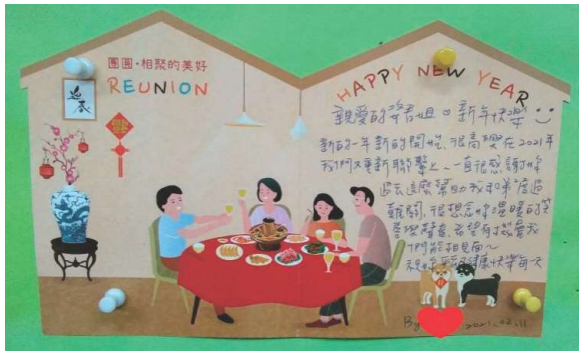 團圓·相聚的美好
REUNION
迎春
HAPPY NEW YEAR
親愛的 姐 新年快樂
新的一年新的開始,很高興在2021年
我們又重新聯繫上,一直很感謝妳
過去這麼幫助我和弟 度過
難關,很想念妳溫暖的笑
聲 ,希望有機會我
們能相見面~
祝 健康快樂每一天
By 2021.02.11